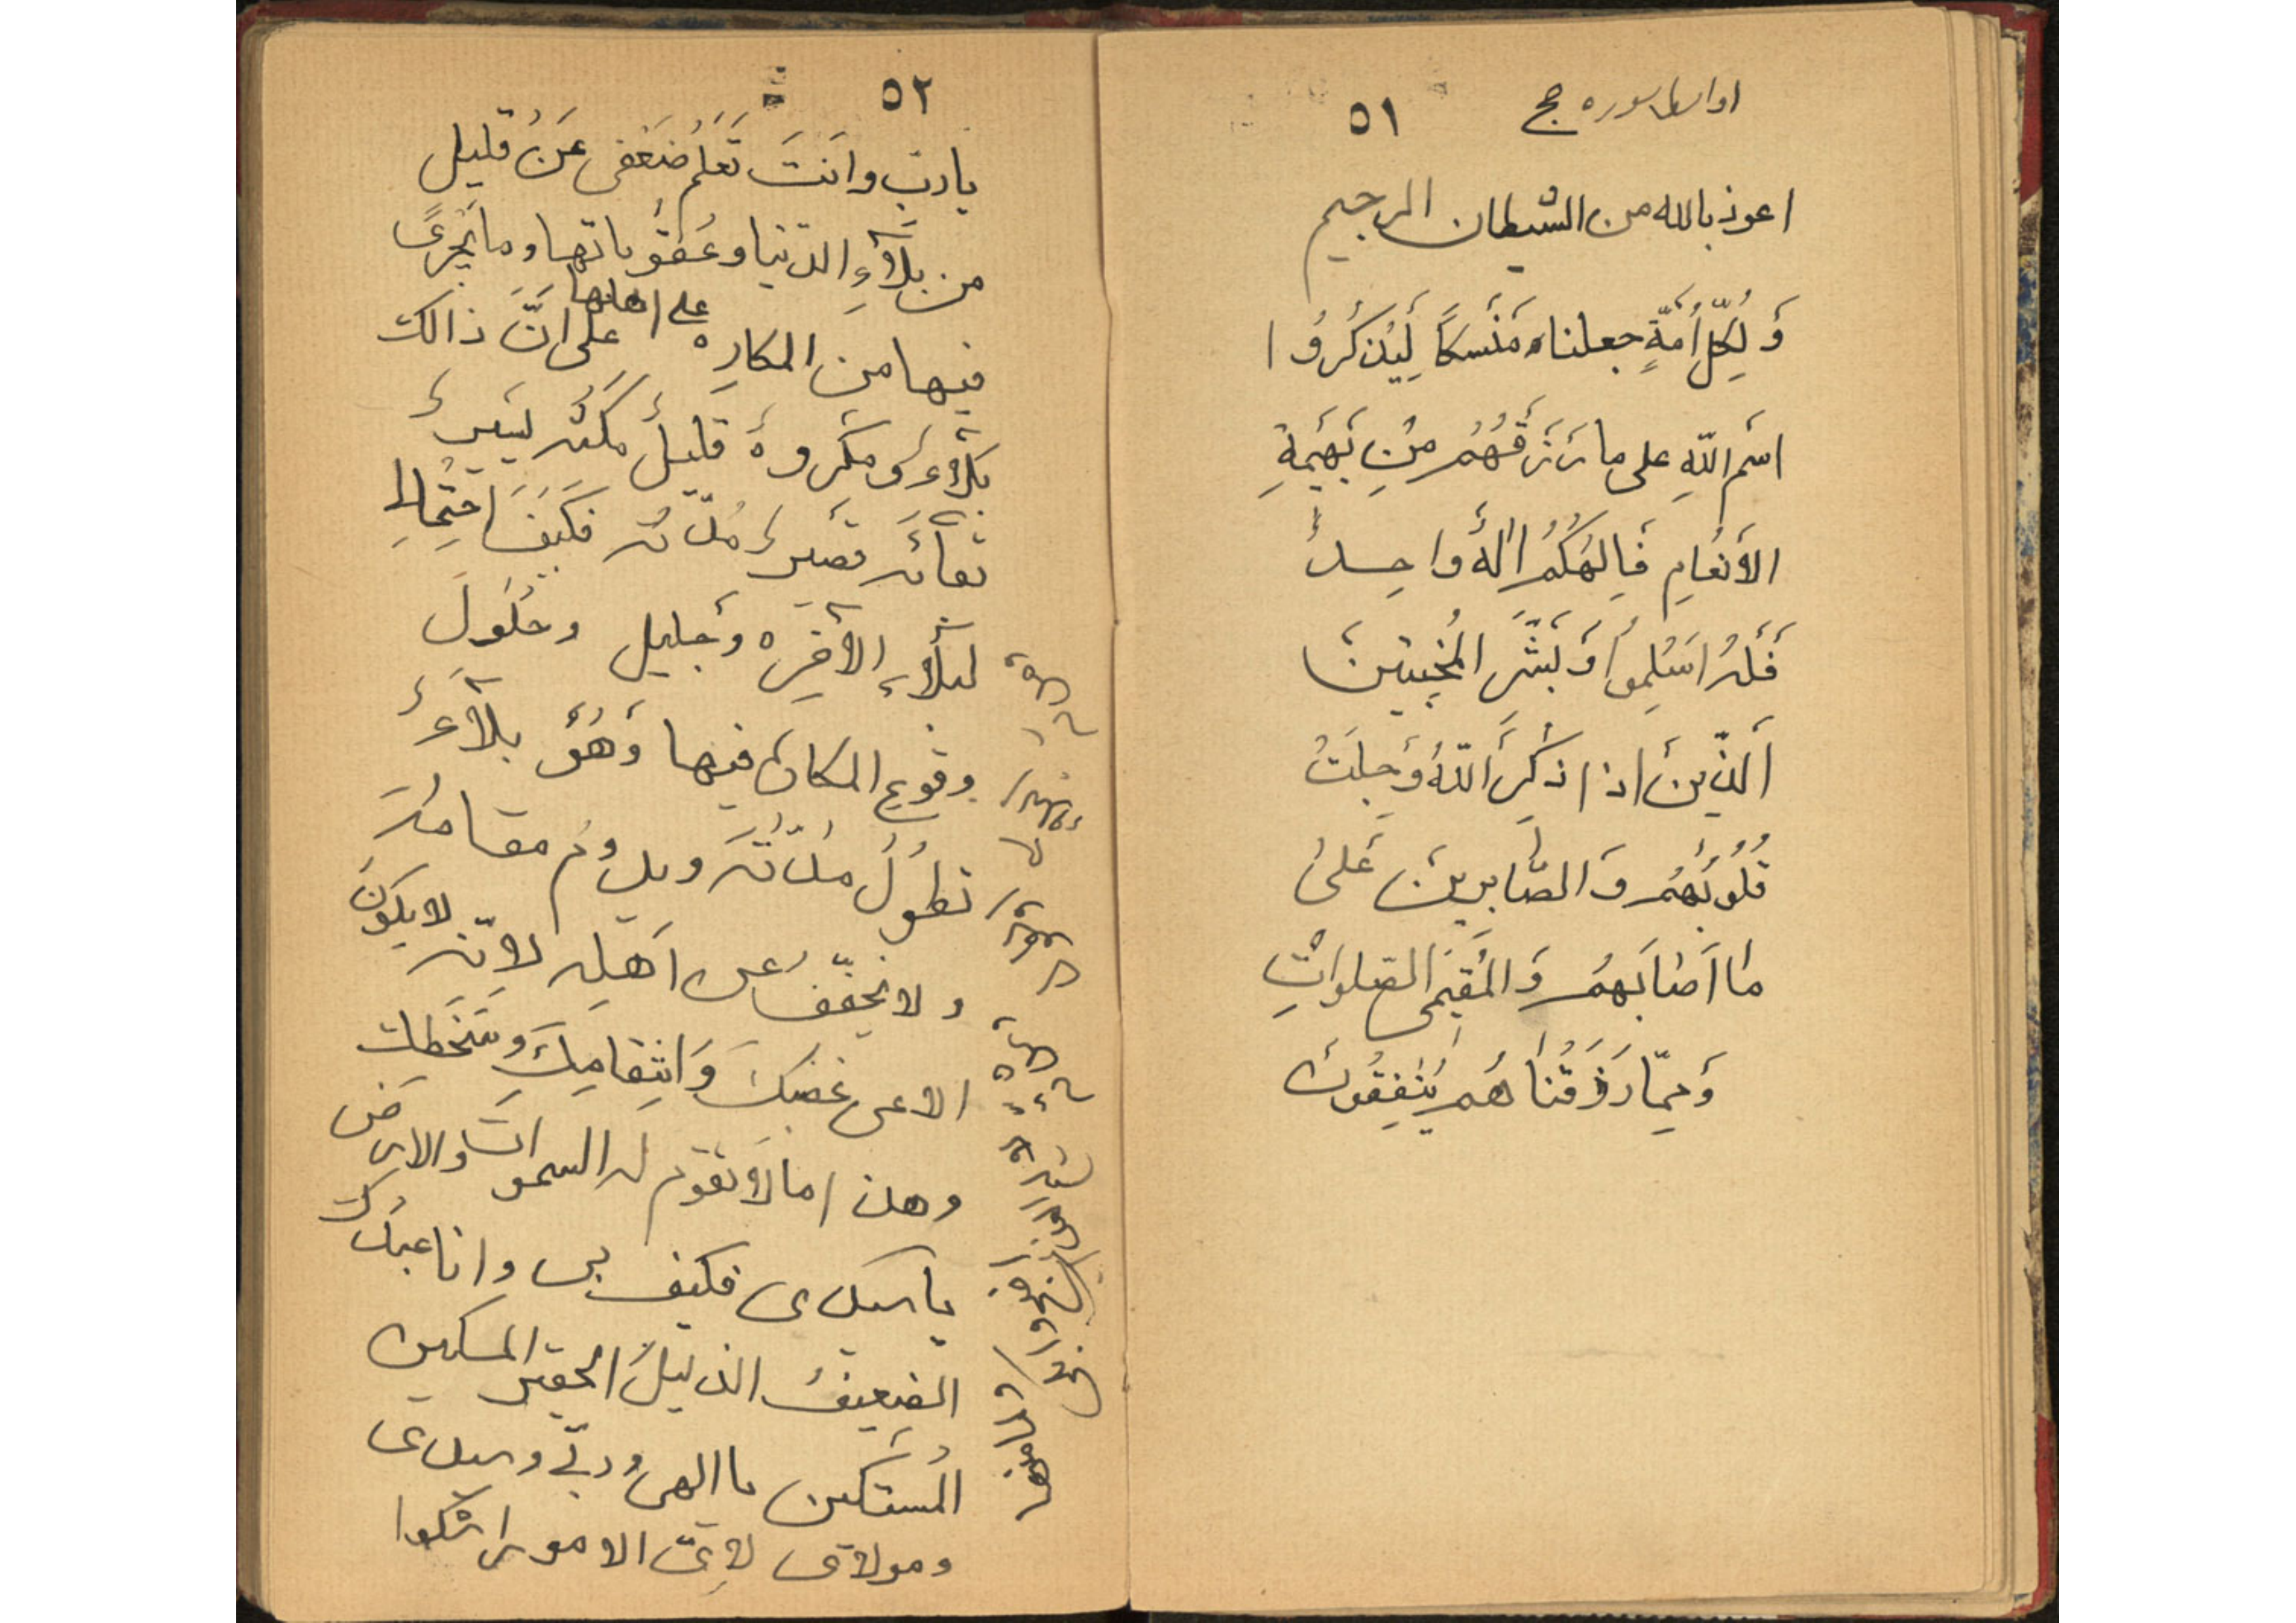 اواسط سوره حج
٥١
اعوذ بالله من الشیطان الرجیم
وَ لِکُلِّ اُمَّةٍ جعلناه مَنْسَکاً لِیَذکُرُوا
اسْمَ اللّهِ علی ما رَزَقَهُمْ مِنْ بَهیمَةِ
الأَنْعامِ فَاِلهُکُمْ اِلهٌ واحِدٌ
فَلَهُ اَسْلِموُا وَ بَشَّرِ المُخْبِتینَ
اَلَّذینَ اذا ذُکِرَ اللّهُ وَجِلَتْ
قُلُوبُهُمْ وَ الصّابِرینَ عَلی
ما اَصابَهُمْ وَ المُقیمی الصلواتِ
وَ مِمّا رَزَقْناهُم یُنْفِقُونَ
٥٢
یا ربِّ وانتَ تَعْلَمُ ضَعْفی عَنْ قلیل
من بَلآءِ الدّنیا و عُقوُباتها و ما یَجْری
فیها من المکارِه علی اهلها علی انَّ ذالک
بَلآءٌ وَ مَکْروهٌ قلیلٌ مَکْثُه یَسیرٌ
بَقآئُه قَصیرٌ مُدّتُه فَکَیْفَ احْتِمالی
لبَلآءِ الآخِرَه وَ جَلیل وحُلُولَ
وقوع المکاره فیها وَ هُوَ بلآءٌ
تَطُولُ مُدّتُهُ و یدوُم مقامُهُ
ولا یُخَفّفُ عن اَهْلِه لِانّه لا یَکوُنُ
الا عن غضبک وَ انْتِقامِکَ وَ سَخَطِک
وهذا ما لا تَقوُم له السموات والارض
یا سیدی فکیف بی و انا عبدُک
الضعیفُ الذلیلُ الحقیر المسکین
المُسْتَکین یا الهی و ربّی و سیدی
و مولای لِاَیّ الامور اشکوا